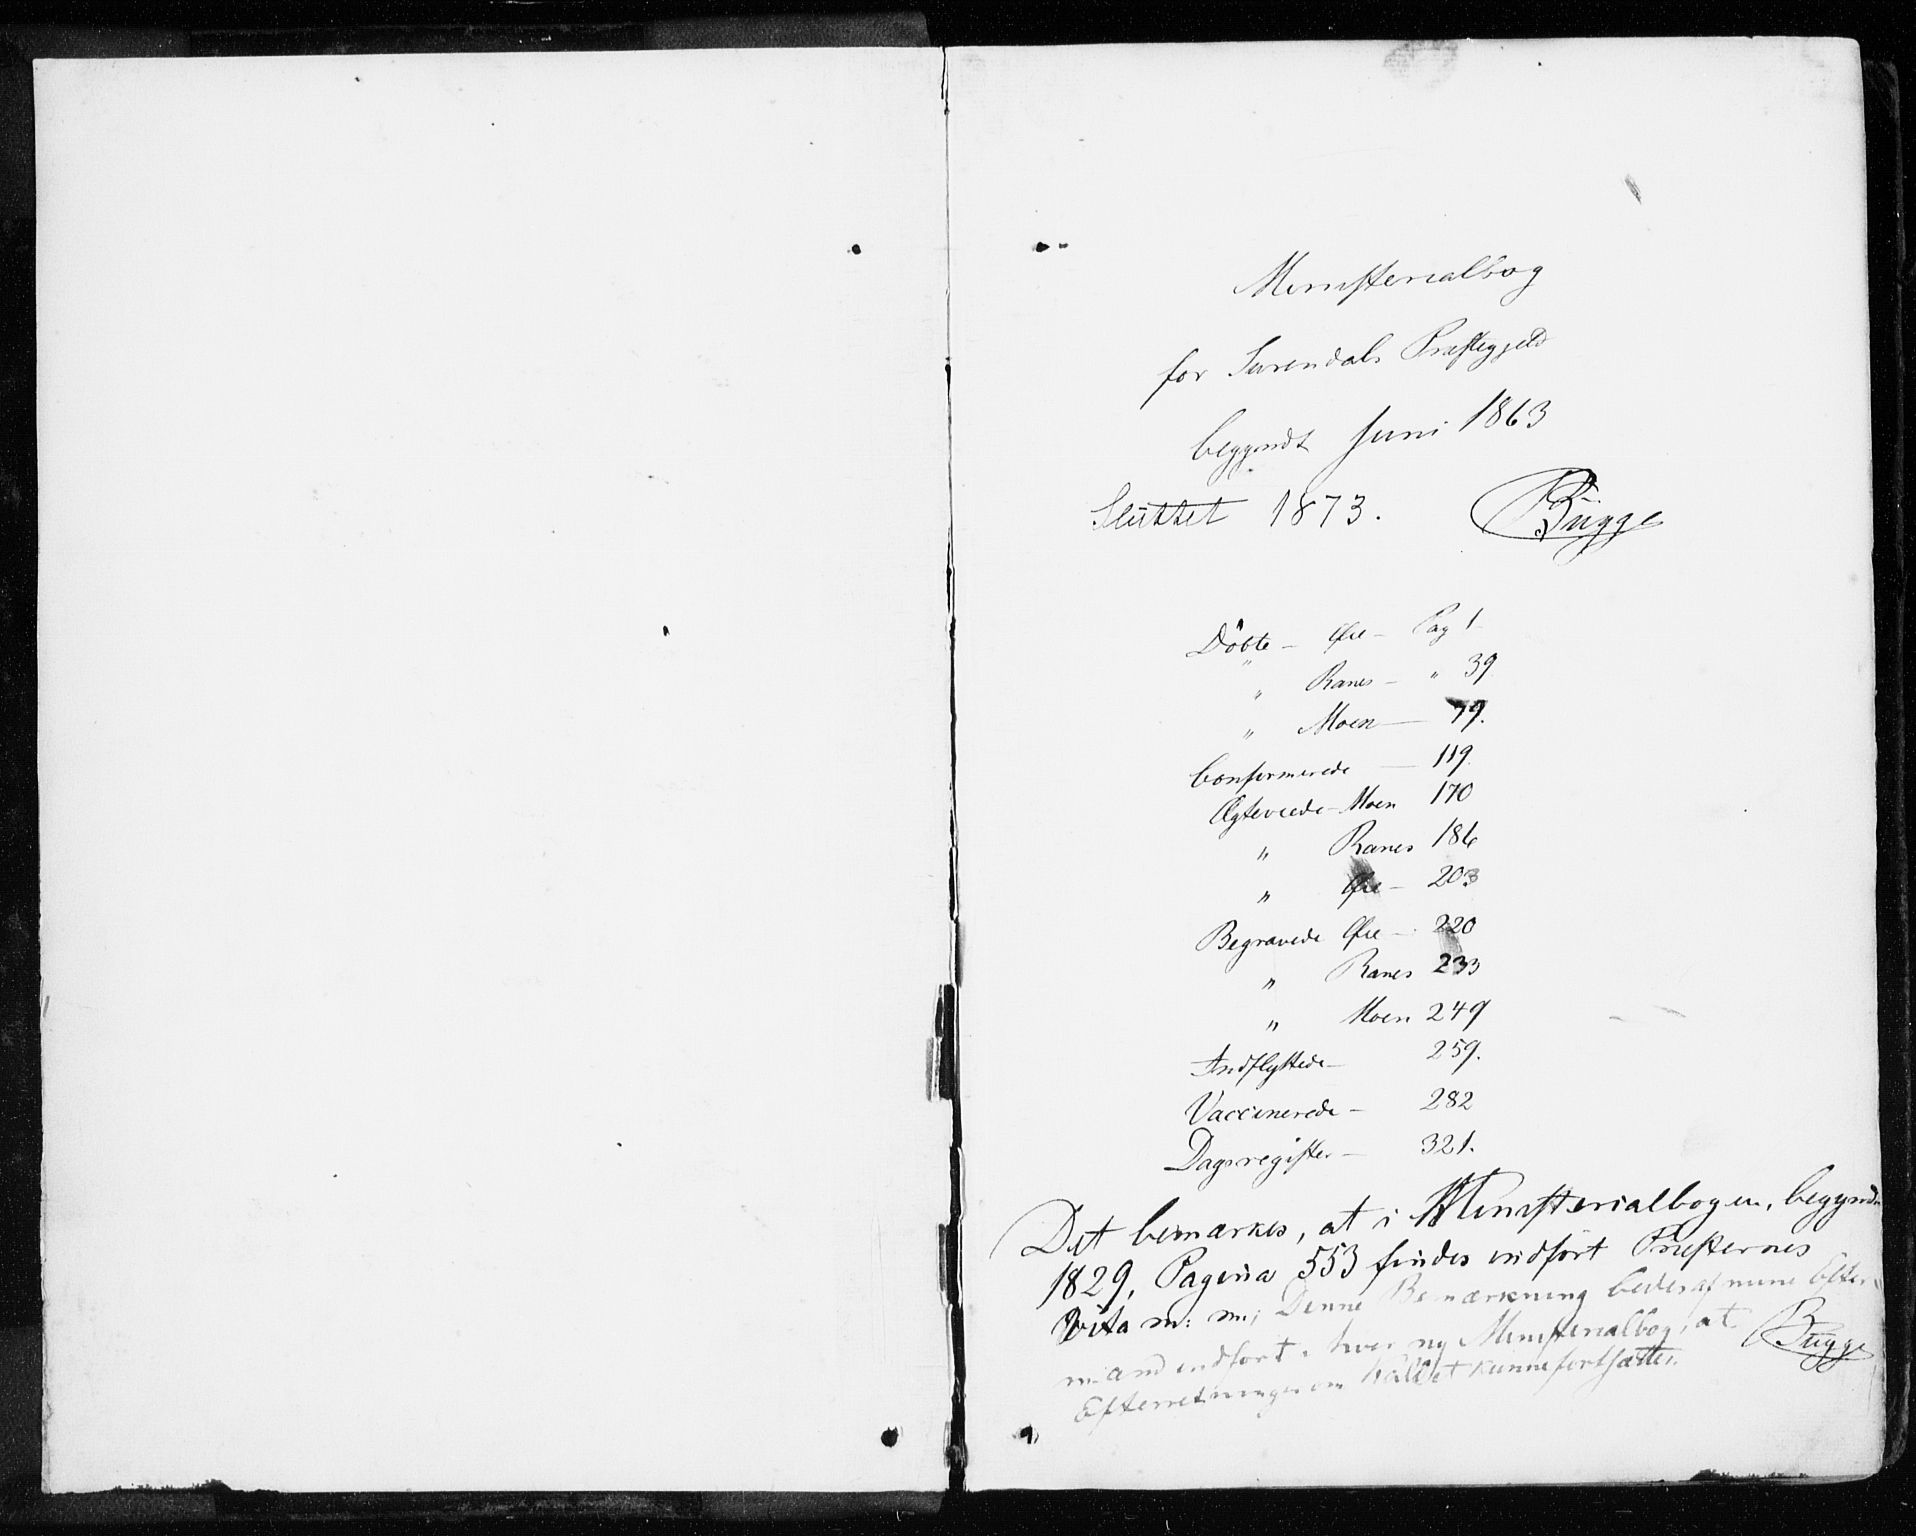 Ministerialbog
for Surendals Præstegjeld
begyndt Juni 1863
Sluttet 1873. Bugge
Döbte – Øie – Pag 1
" Ranes – " 39
" Moen – 79.
Confirmerede – 119.
Ægteviede – Moen 170
" Ranes 186
" Øie – 203
Begravede Øie – 220
" Ranes 233
" Moen 249
Indflyttede – 259.
Vaccinerede – 282
Dagsregister – 321.
Det bemærkes, at i Ministerialbogen, begyndt
1829, Pagina 553 findes indført Præsternes
Vita m: m; Denne Bemærkning bedes af mine Efter
mænd indført i hver ny Ministerialbog, at
Efterretninger om Kaldet kunne fortsættes. Bugge